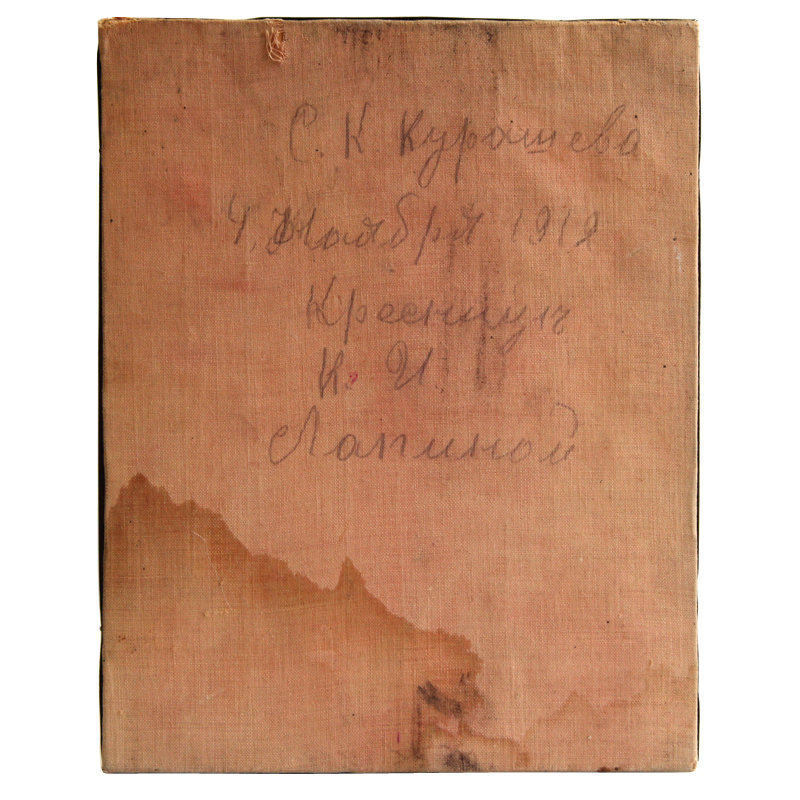 С. К Курашева
4, Ноября 1912
Кресницъ
К. И.
Лапиной